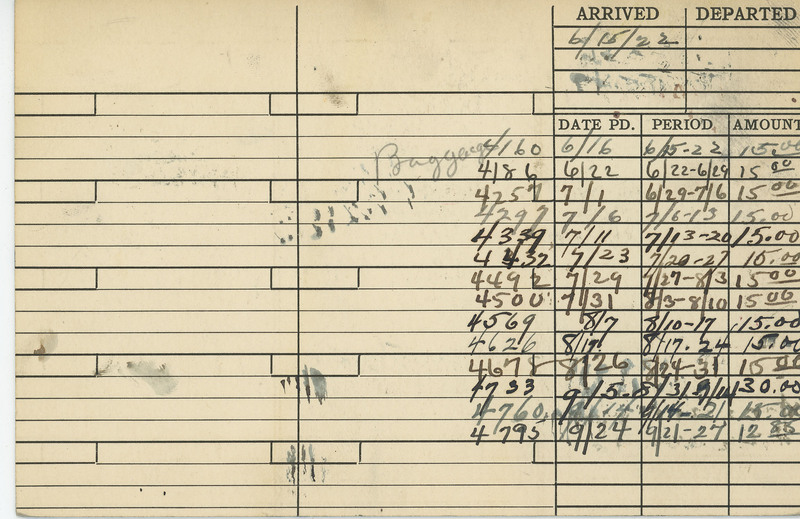 ARRIVED DEPARTED
6/15/22
DATE PD. PERIOD AMOUNT
Baggage 4160 6/16 6/15-22 15.00
4186 6/22 6/22-6/29 15 00
4257 7/1 6/29-7/6 15 00
4297 7/6 7/6-13 15.00
4339 7/11 7/13-20 15.00
4432 7/23 7/20-27 15.00
4492 7/29 7/27-8/3 15 00
4500 7/31 8/3-8/10 15 00
4569 8/7 8/10-17 15.00
4626 8/17 8/17-24 15.00
4678 8/26 8/24-31 15 00
4733 9/5 8/31 9/14 30.00
4760 9/14-21 15 00
4795 9/24 9/21-27 12 86